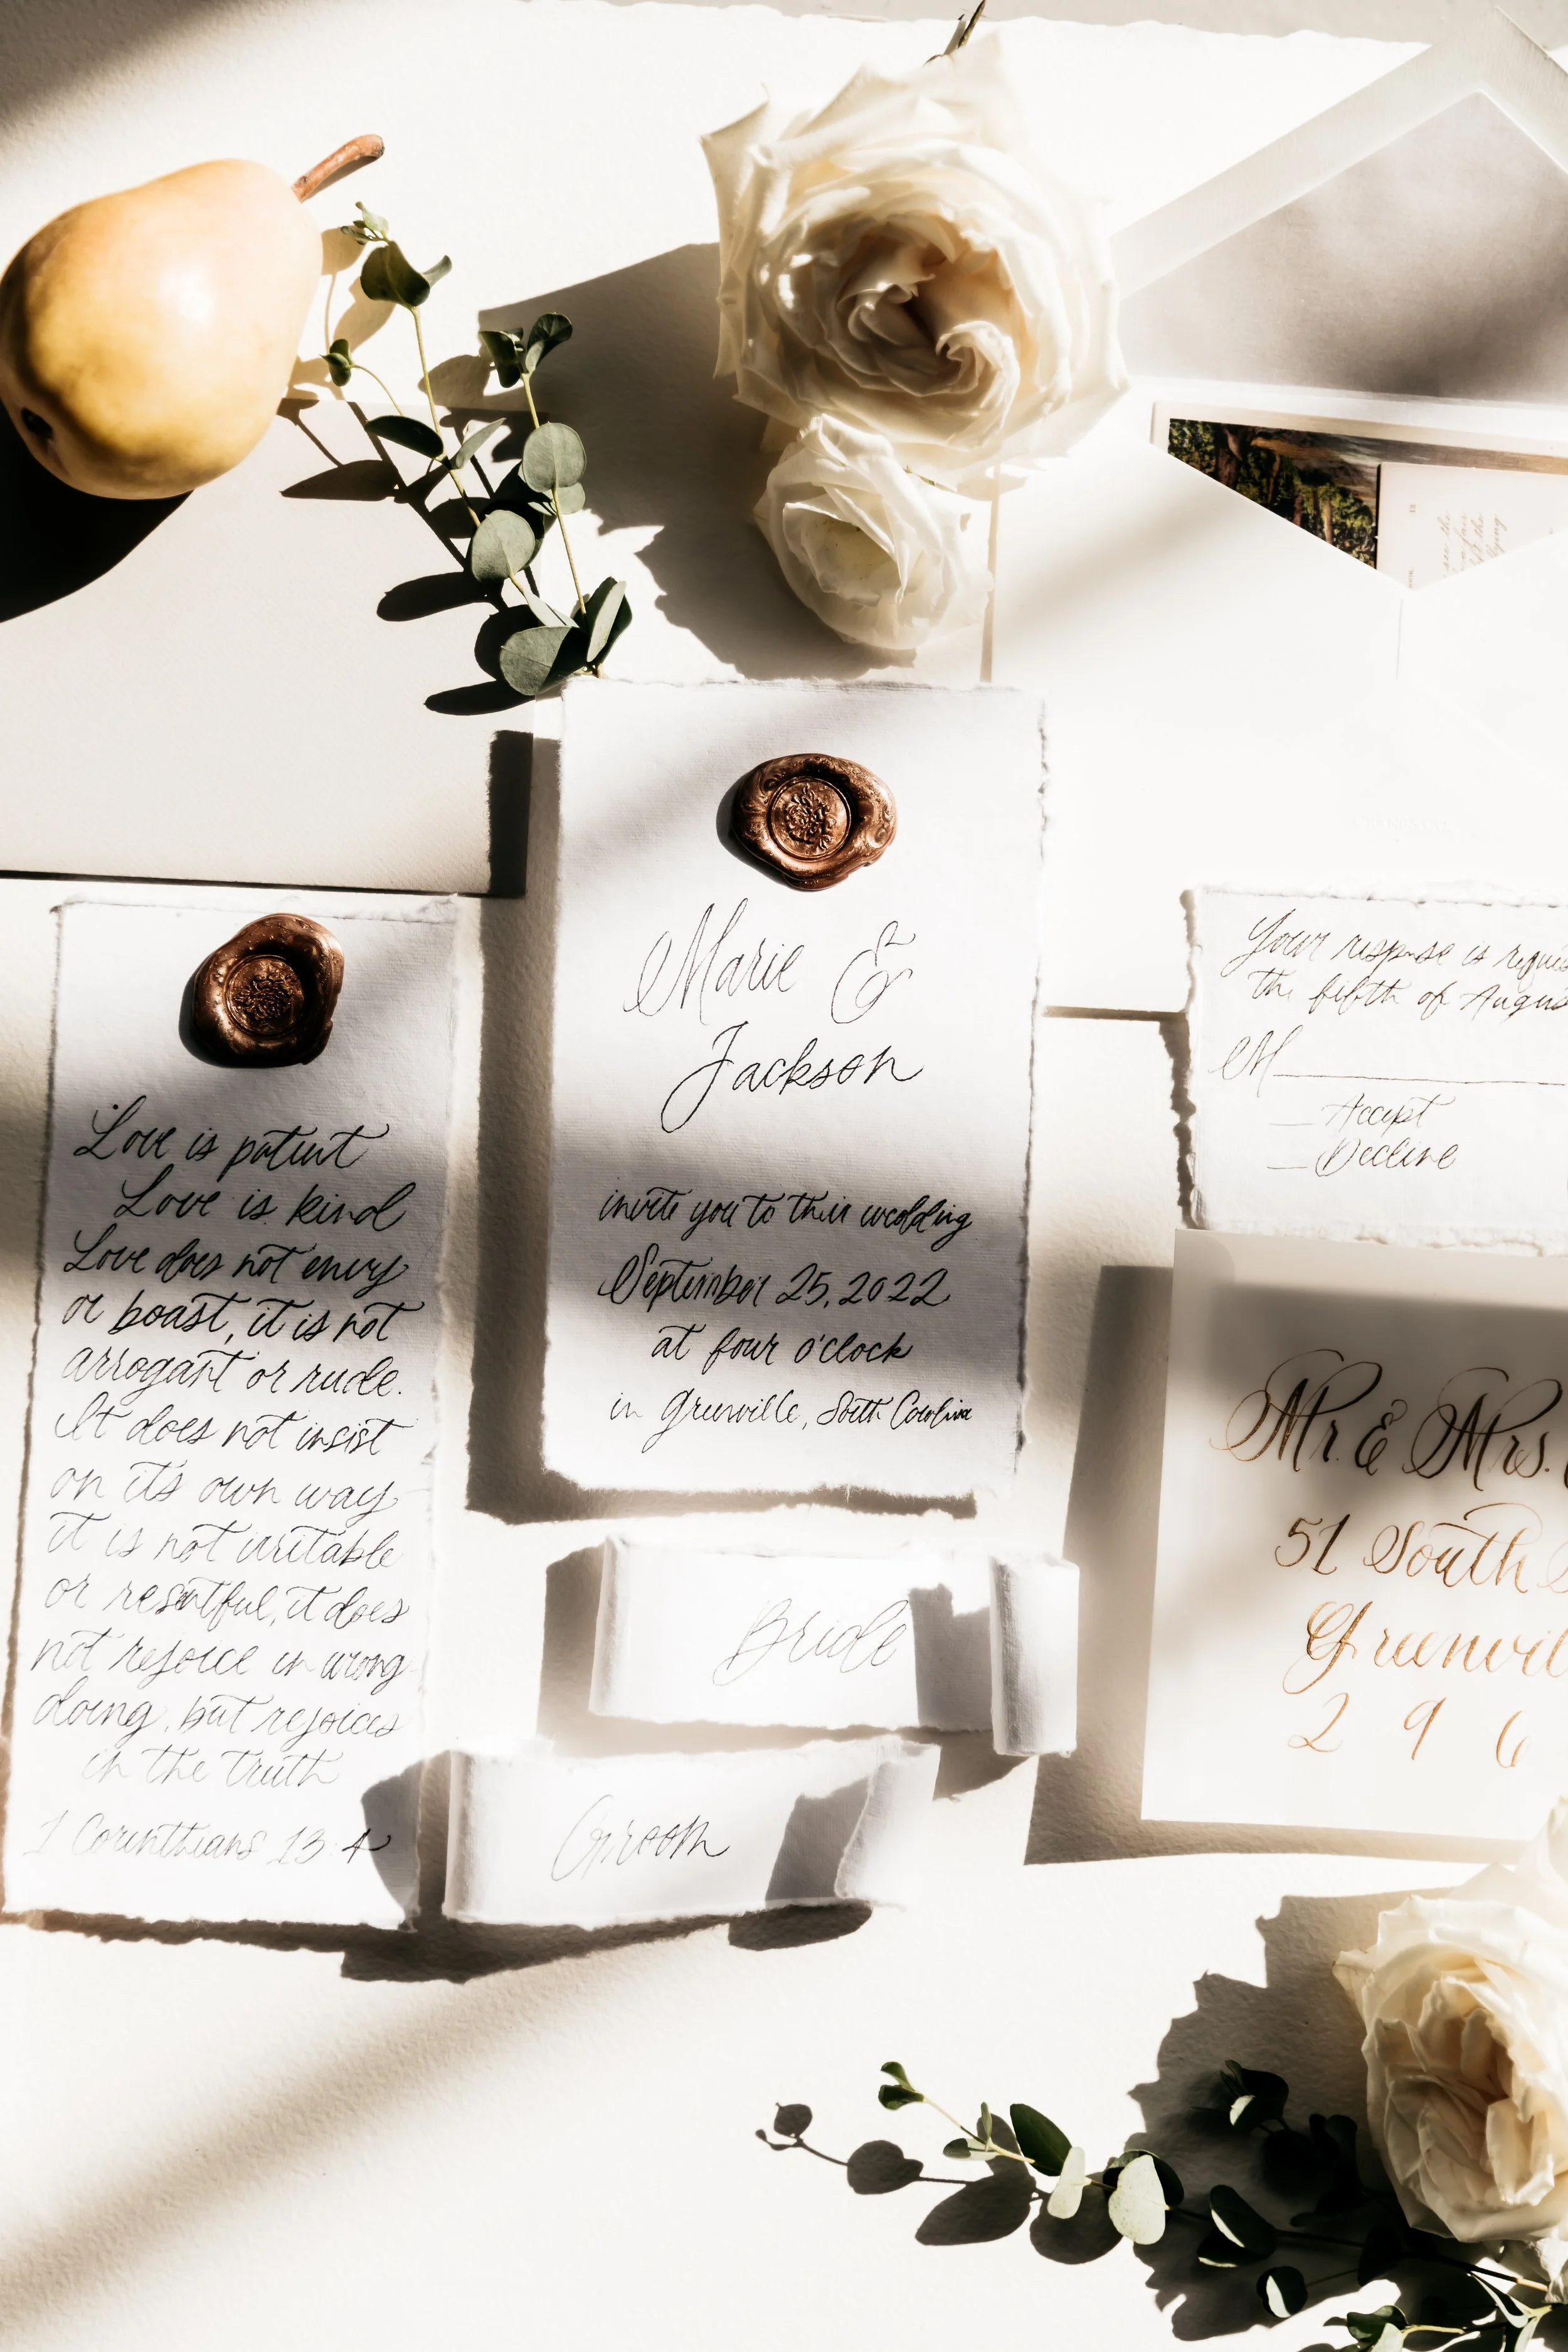 Love is patient
Love is kind
Love does not envy
or boast, it is not
arrogant or rude.
It does not insist
on it's own way
it is not irritable
or resentful, it does
not rejoice in wrong
doing, but rejoices
in the truth
1 Corinthians 13:4
Marie &
Jackson
invite you to their wedding
September 25, 2022
at four o'clock
in Greenville, South Carolina
Bride
Groom
Your response is
the fifth of
M
Accept
Decline
Mr. & Mrs.
51 South
2 9 6